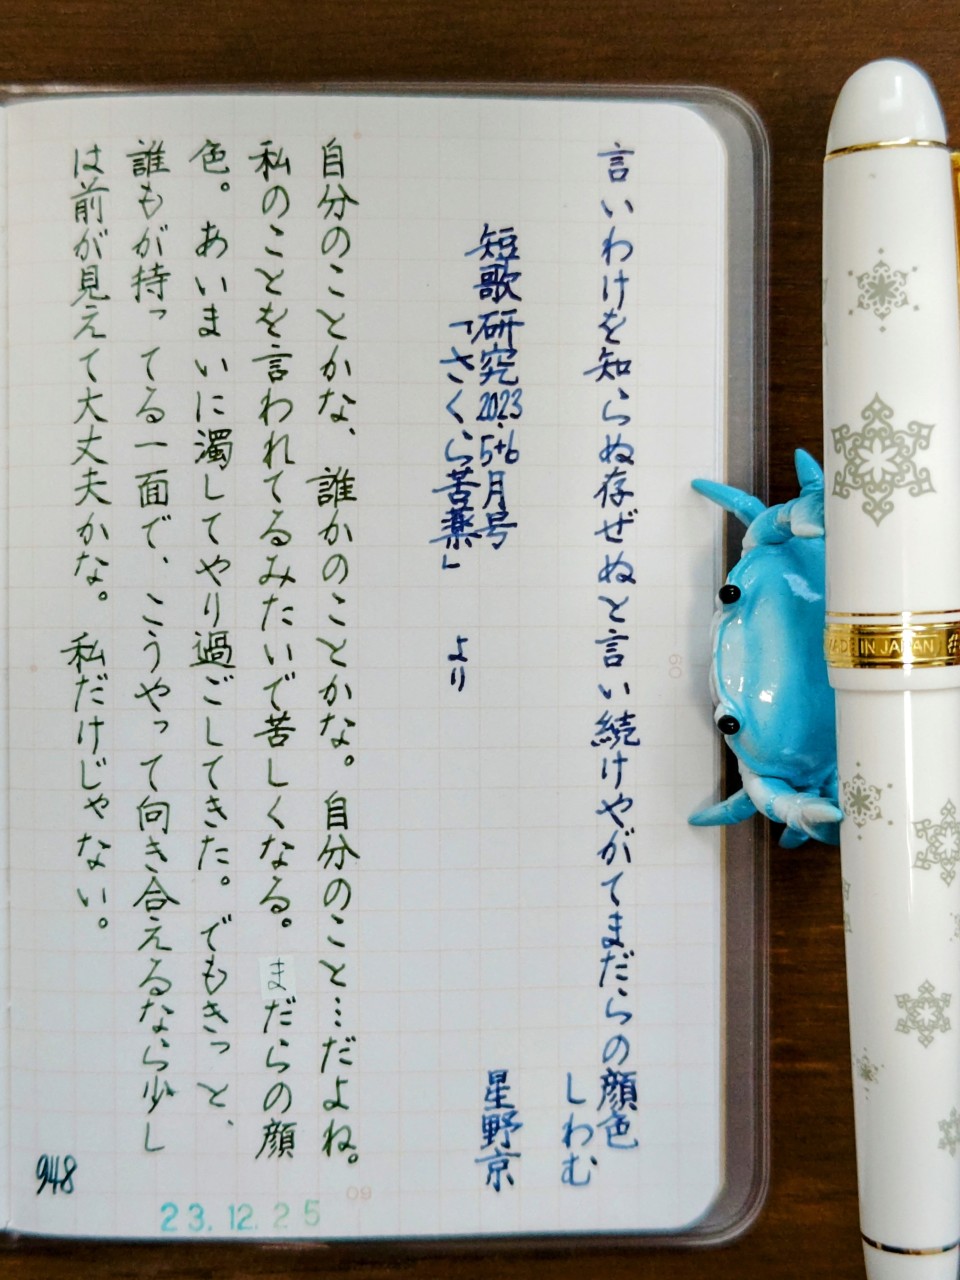 言いわけを知らぬ存ぜぬと言い続けやがてまだらの顔色
しわむ
星野京
短歌研究2023.5+6月号
「さくら苦薬」より
自分のことかな、誰かのことかな。自分のこと…だよね。
私のことを言われてるみたいで苦しくなる。まだらの顔
色。あいまいに濁してやり過ごしてきた。でもきっと、
誰もが持ってる一面で、こうやって向き合えるなら少し
は前が見えて大丈夫かな。私だけじゃない。
948
23.12.25
60
60
MADE IN JAPAN